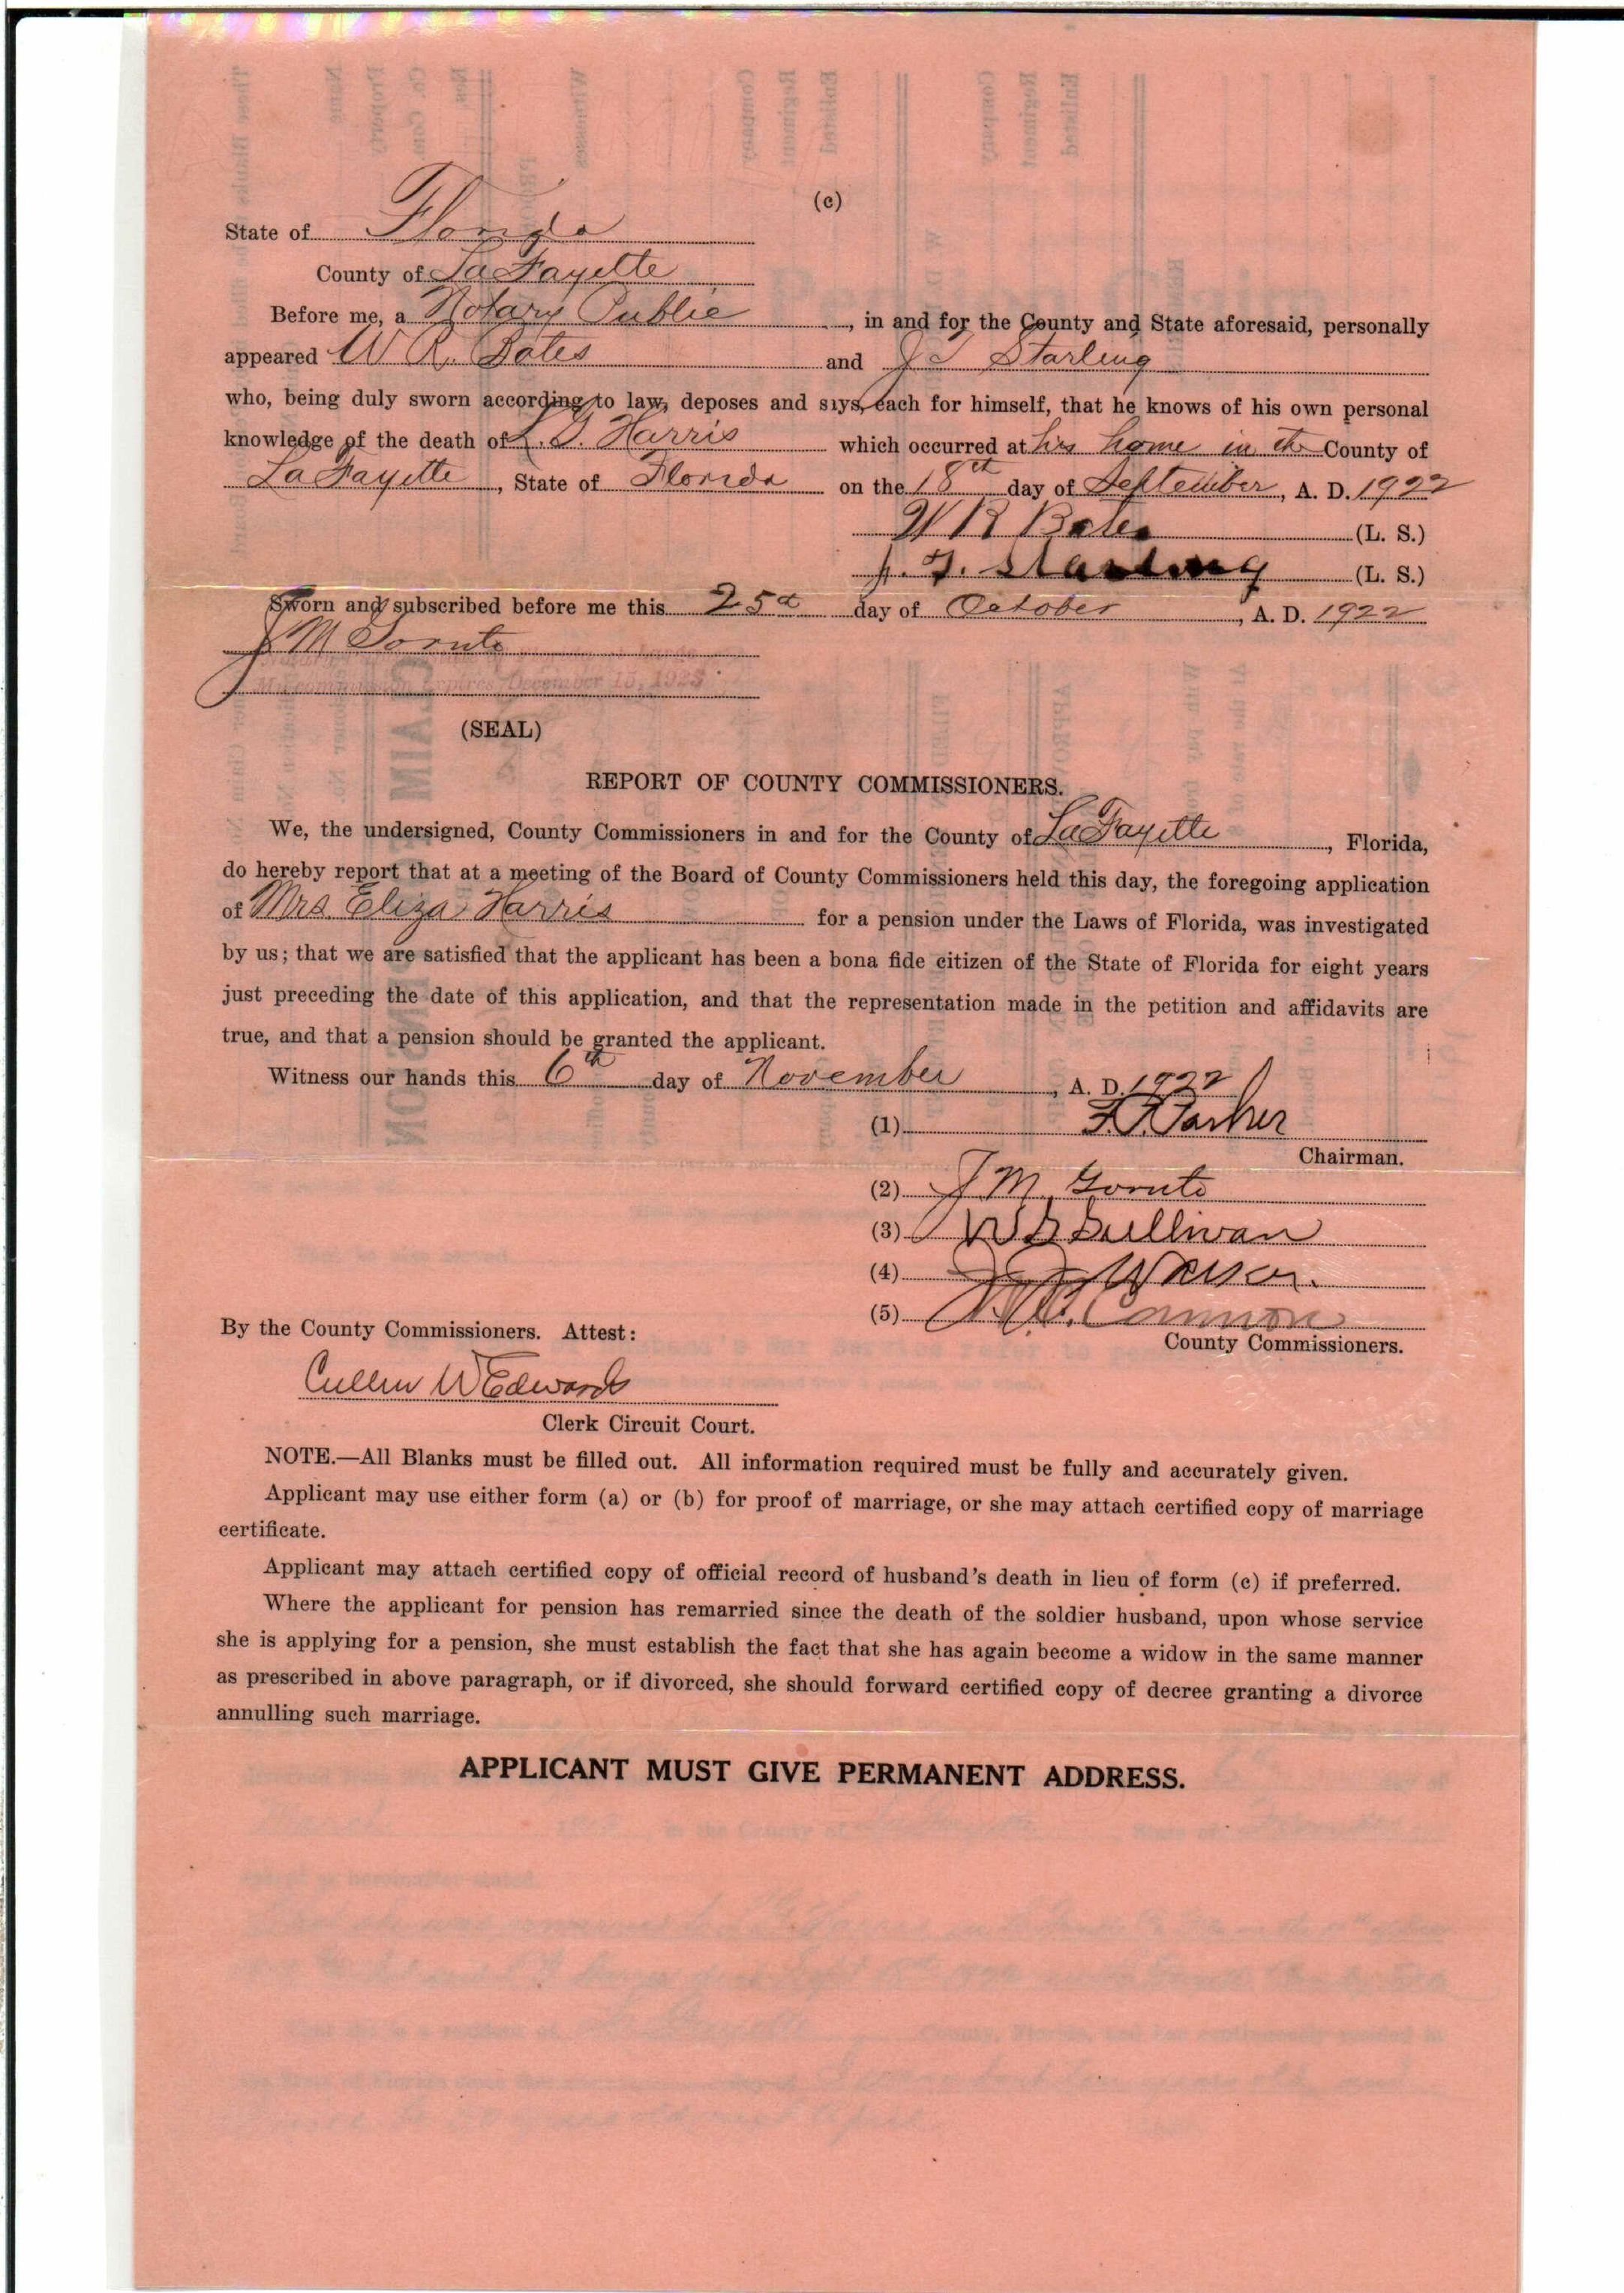 (c)
State of Florida
County of LaFayette
Before me, a Notary Public, in and for the County and State aforesaid, personally
appeared W R. Bates and J T Starling
who, being duly sworn according to law, deposes and says, each for himself, that he knows of his own personal
knowledge of the death of Harris which occurred at his home in the County of
LaFayette, State of Florida on the 18th day of September, A. D. 1922
W R Bates (L. S.)
J. T. Starling (L. S.)
Sworn and subscribed before me this 25 day of October, A. D. 1922
J M
My commission Expires December 15, 1923
(SEAL)
REPORT OF COUNTY COMMISSIONERS.
We, the undersigned, County Commissioners in and for the County of LaFayette, Florida,
do hereby report that at a meeting of the Board of County Commissioners held this day, the foregoing application
of Mrs Eliza Harris for a pension under the Laws of Florida, was investigated
by us; that we are satisfied that the applicant has been a bona fide citizen of the State of Florida for eight years
just preceding the date of this application, and that the representation made in the petition and affidavits are
true, and that a pension should be granted the applicant.
Witness our hands this 6th day of November, A. D. 1922
(1) Parker
Chairman.
(2) J M
(3) Sullivan
(4)
(5) Cannon
County Commissioners.
By the County Commissioners. Attest:
Cullen W Edwards
Clerk Circuit Court.
NOTE.—All Blanks must be filled out. All information required must be fully and accurately given.
Applicant may use either form (a) or (b) for proof of marriage, or she may attach certified copy of marriage
certificate.
Applicant may attach certified copy of official record of husband's death in lieu of form (c) if preferred.
Where the applicant for pension has remarried since the death of the soldier husband, upon whose service
she is applying for a pension, she must establish the fact that she has again become a widow in the same manner
as prescribed in above paragraph, or if divorced, she should forward certified copy of decree granting a divorce
annulling such marriage.
APPLICANT MUST GIVE PERMANENT ADDRESS.